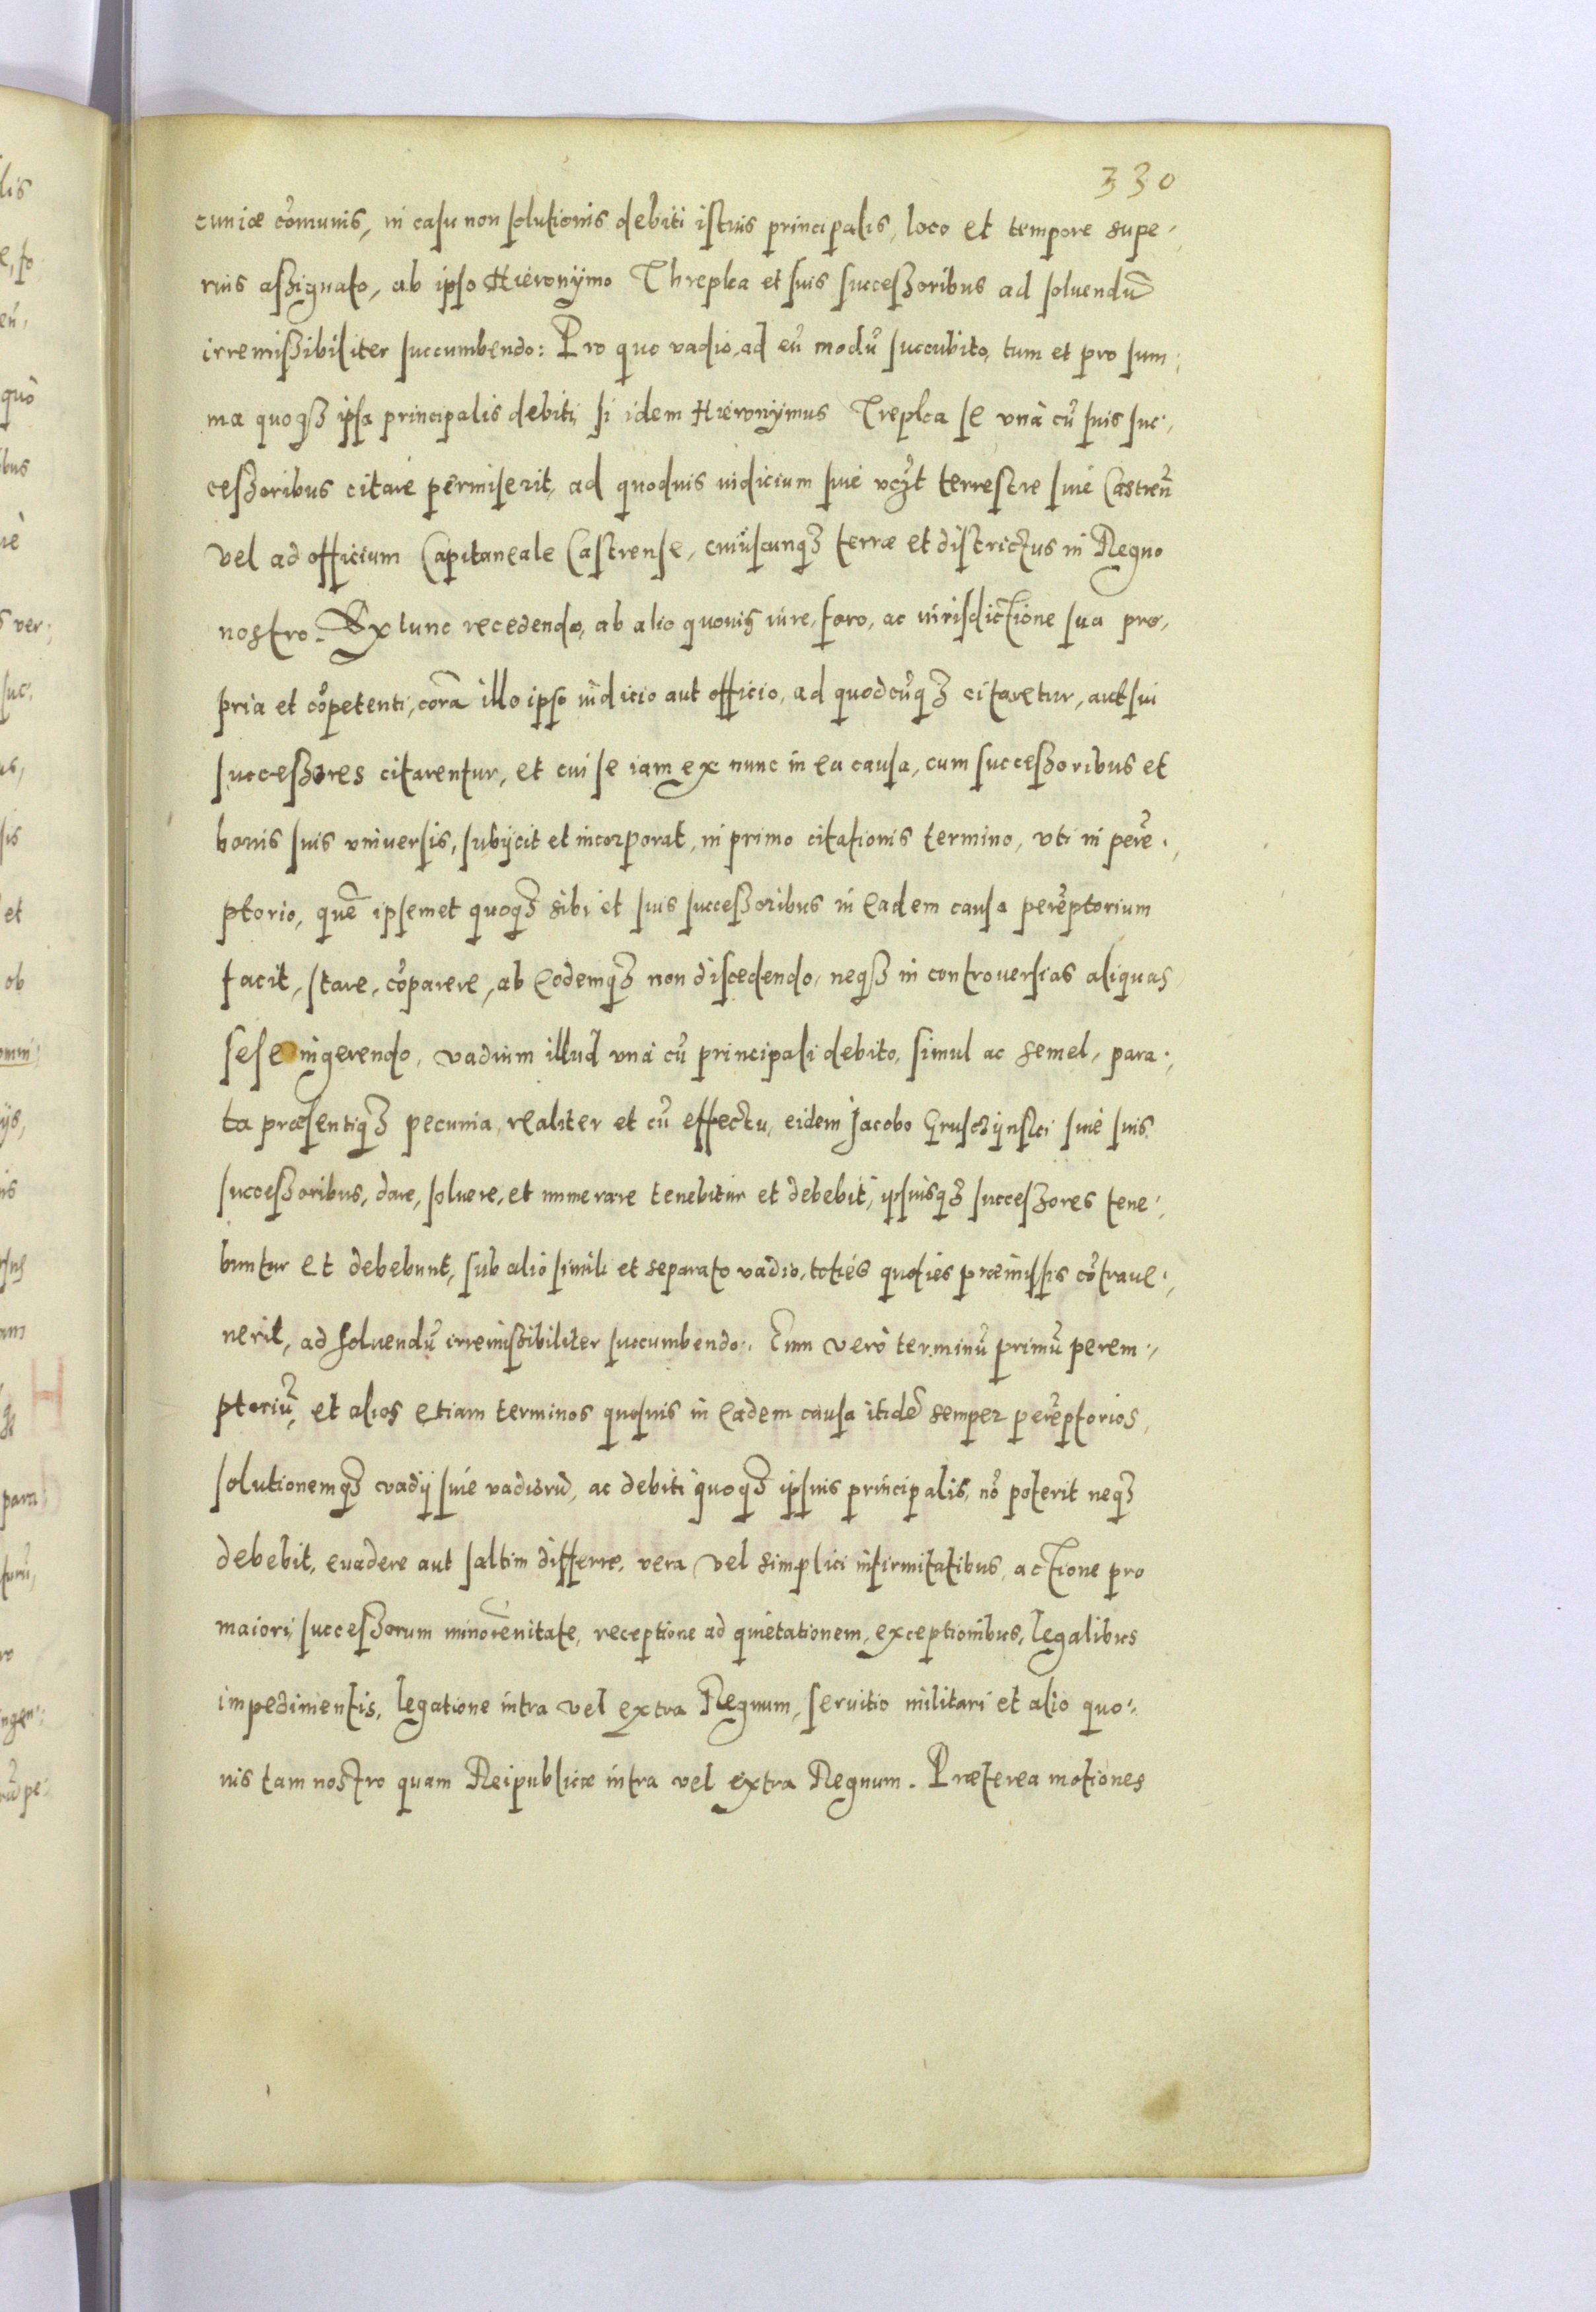 330
cuniæ cõmunis, in casu non solutionis debiti istius principalis, loco et tempore supe-
rius assignato, ab ipso Hieronÿmo Threpka et suis successoribus ad soluendũ
irremissibiliter succumbendo: Pro quo vadio, ad eũ modũ succubito, tum et pro sum-
ma quoqꝫ ipsa principalis debiti, si idem Hieronÿmus Trepka se vnà cũ suis suc-
cessoribus citare permiserit, ad quoduis iudicium siue terrestre siue Castreñ
vel ad officium Capitaneale Castrense, cuiuscunqꝫ terræ et districtus in Regno
nostro. Ex tunc recedendo, ab alio quouis iure, foro, ac iurisdictione sua pro-
pria et cõpetenti, corã illo ipso iudicio aut officio, ad quodcũqꝫ citaretur, aut sui
successores citarentur, et cui se iam ex nunc in ea causa, cum successoribus et
bonis suis vniuersis, subijcit et incorporat, in primo citationis termino, vti in perẽ-
ptorio, quẽ ipsemet quoqꝫ sibi et suis successoribus in eadem causa perẽptorium
facit, stare, cõparere, ab eodemqꝫ non discedendo, neqꝫ in controuersias aliquas
sese ingerendo, vadium illud vnà cũ principali debito, simul ac semel, para-
ta præsentiqꝫ pecunia, realiter et cũ effectu, eidem Jacobo Gruschÿnski siuè suis
successoribus, dare, soluere, et numerare tenebitur et debebit, ipsiusqꝫ successores tene-
buntur et debebunt, sub alio simili et separato vadio, toties quoties præmissis cõtraue-
nerit, ad soluendũ irremissibiliter succumbendo. Eum verò terminũ primũ perem-
ptoriũ, et alios etiam terminos quosuis in eadem causa itidẽ semper perẽptorios,
solutionemqꝫ vadij siue vadiorũ, ac debiti quoqꝫ ipsius principalis, nõ poterit neqꝫ
debebit, euadere aut saltim differre, vera vel simplici infirmitatibus, actione pro
maiori, successorum minorẽnitate, receptione ad quietationem, exceptionibus, legalibus
impedimentis, legatione intra vel extra Regnum, seruitio militari et alio quo-
uis tam nostro quam Reipublicæ intra vel extra Regnum. Præterea motiones